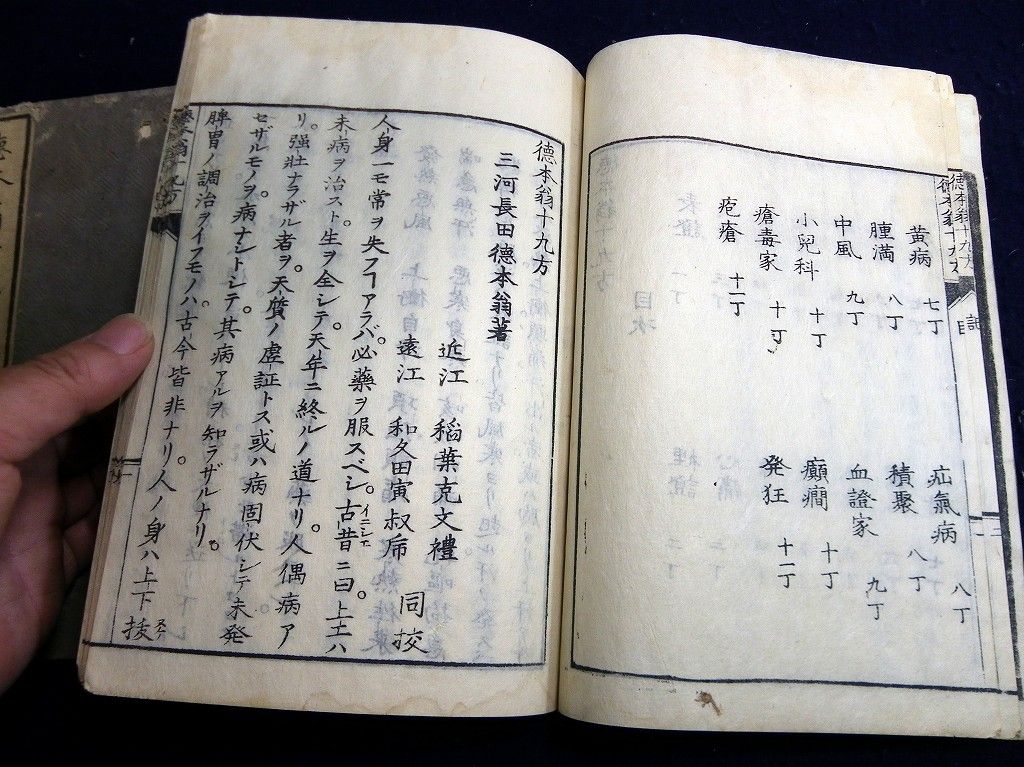 黄病 七丁
疝氣病 八丁
腫満 八丁
積聚 八丁
中風 九丁
血證家 九丁
小兒科 十丁
癲癇 十丁
瘡毒家 十丁
發狂 十一丁
疱瘡 十一丁
德本翁十九方
三河長田德本翁著
近江 稻葉克文禮
遠江 和久田寅叔虎 同挍
人身一モ常ヲ失フヿアラバ必藥ヲ服スベシ。古昔ニ曰。上工ハ
未病ヲ治スト。生ヲ全シテ天年ニ終ルノ道ナリ。人偶病ア
リ。强壯ナラザル者ヲ。天質ノ虚証トス或ハ病固伏シテ未発
セザルモノヲ。病ナシトシテ。其病アルヲ知ラザルナリ。
脾胃ノ調治ヲイフモノハ。古今皆非ナリ。人ノ身ハ上下